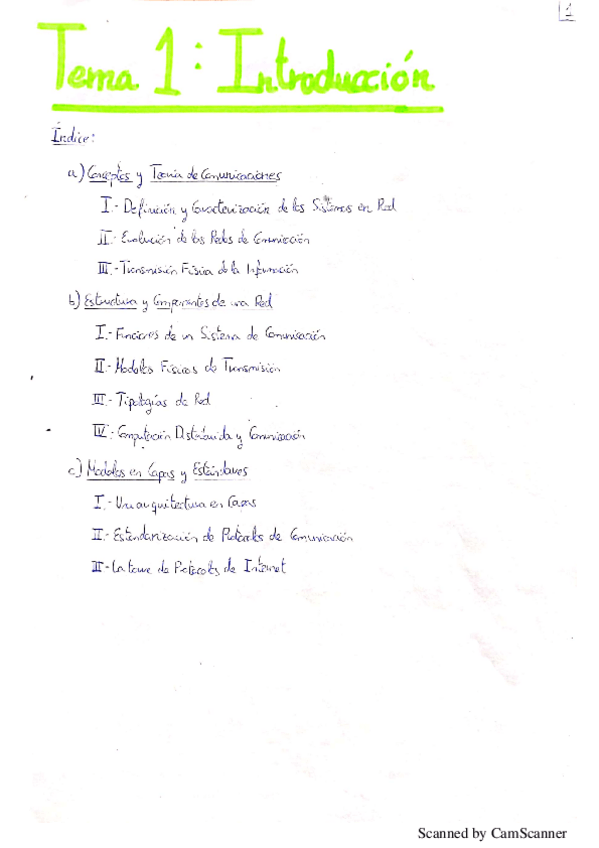 1
Tema 1: Introducción
Índice:
a) Conceptos y Teoría de Comunicaciones
I.- Definición y Caracterización de los Sistemas en Red
II.- Evolución de las Redes de Comunicación
III.- Transmisión Física de la Información
b) Estructura y Componentes de una Red
I.- Funciones de un Sistema de Comunicación
II.- Modelos Físicos de Transmisión
III.- Tipologías de Red
IV.- Computación Distribuida y Comunicación
c) Modelos en Capas y Estándares
I.- Una arquitectura en Capas
II.- Estandarización de Protocolos de Comunicación
III.- La torre de Protocolos de Internet
Scanned by CamScanner